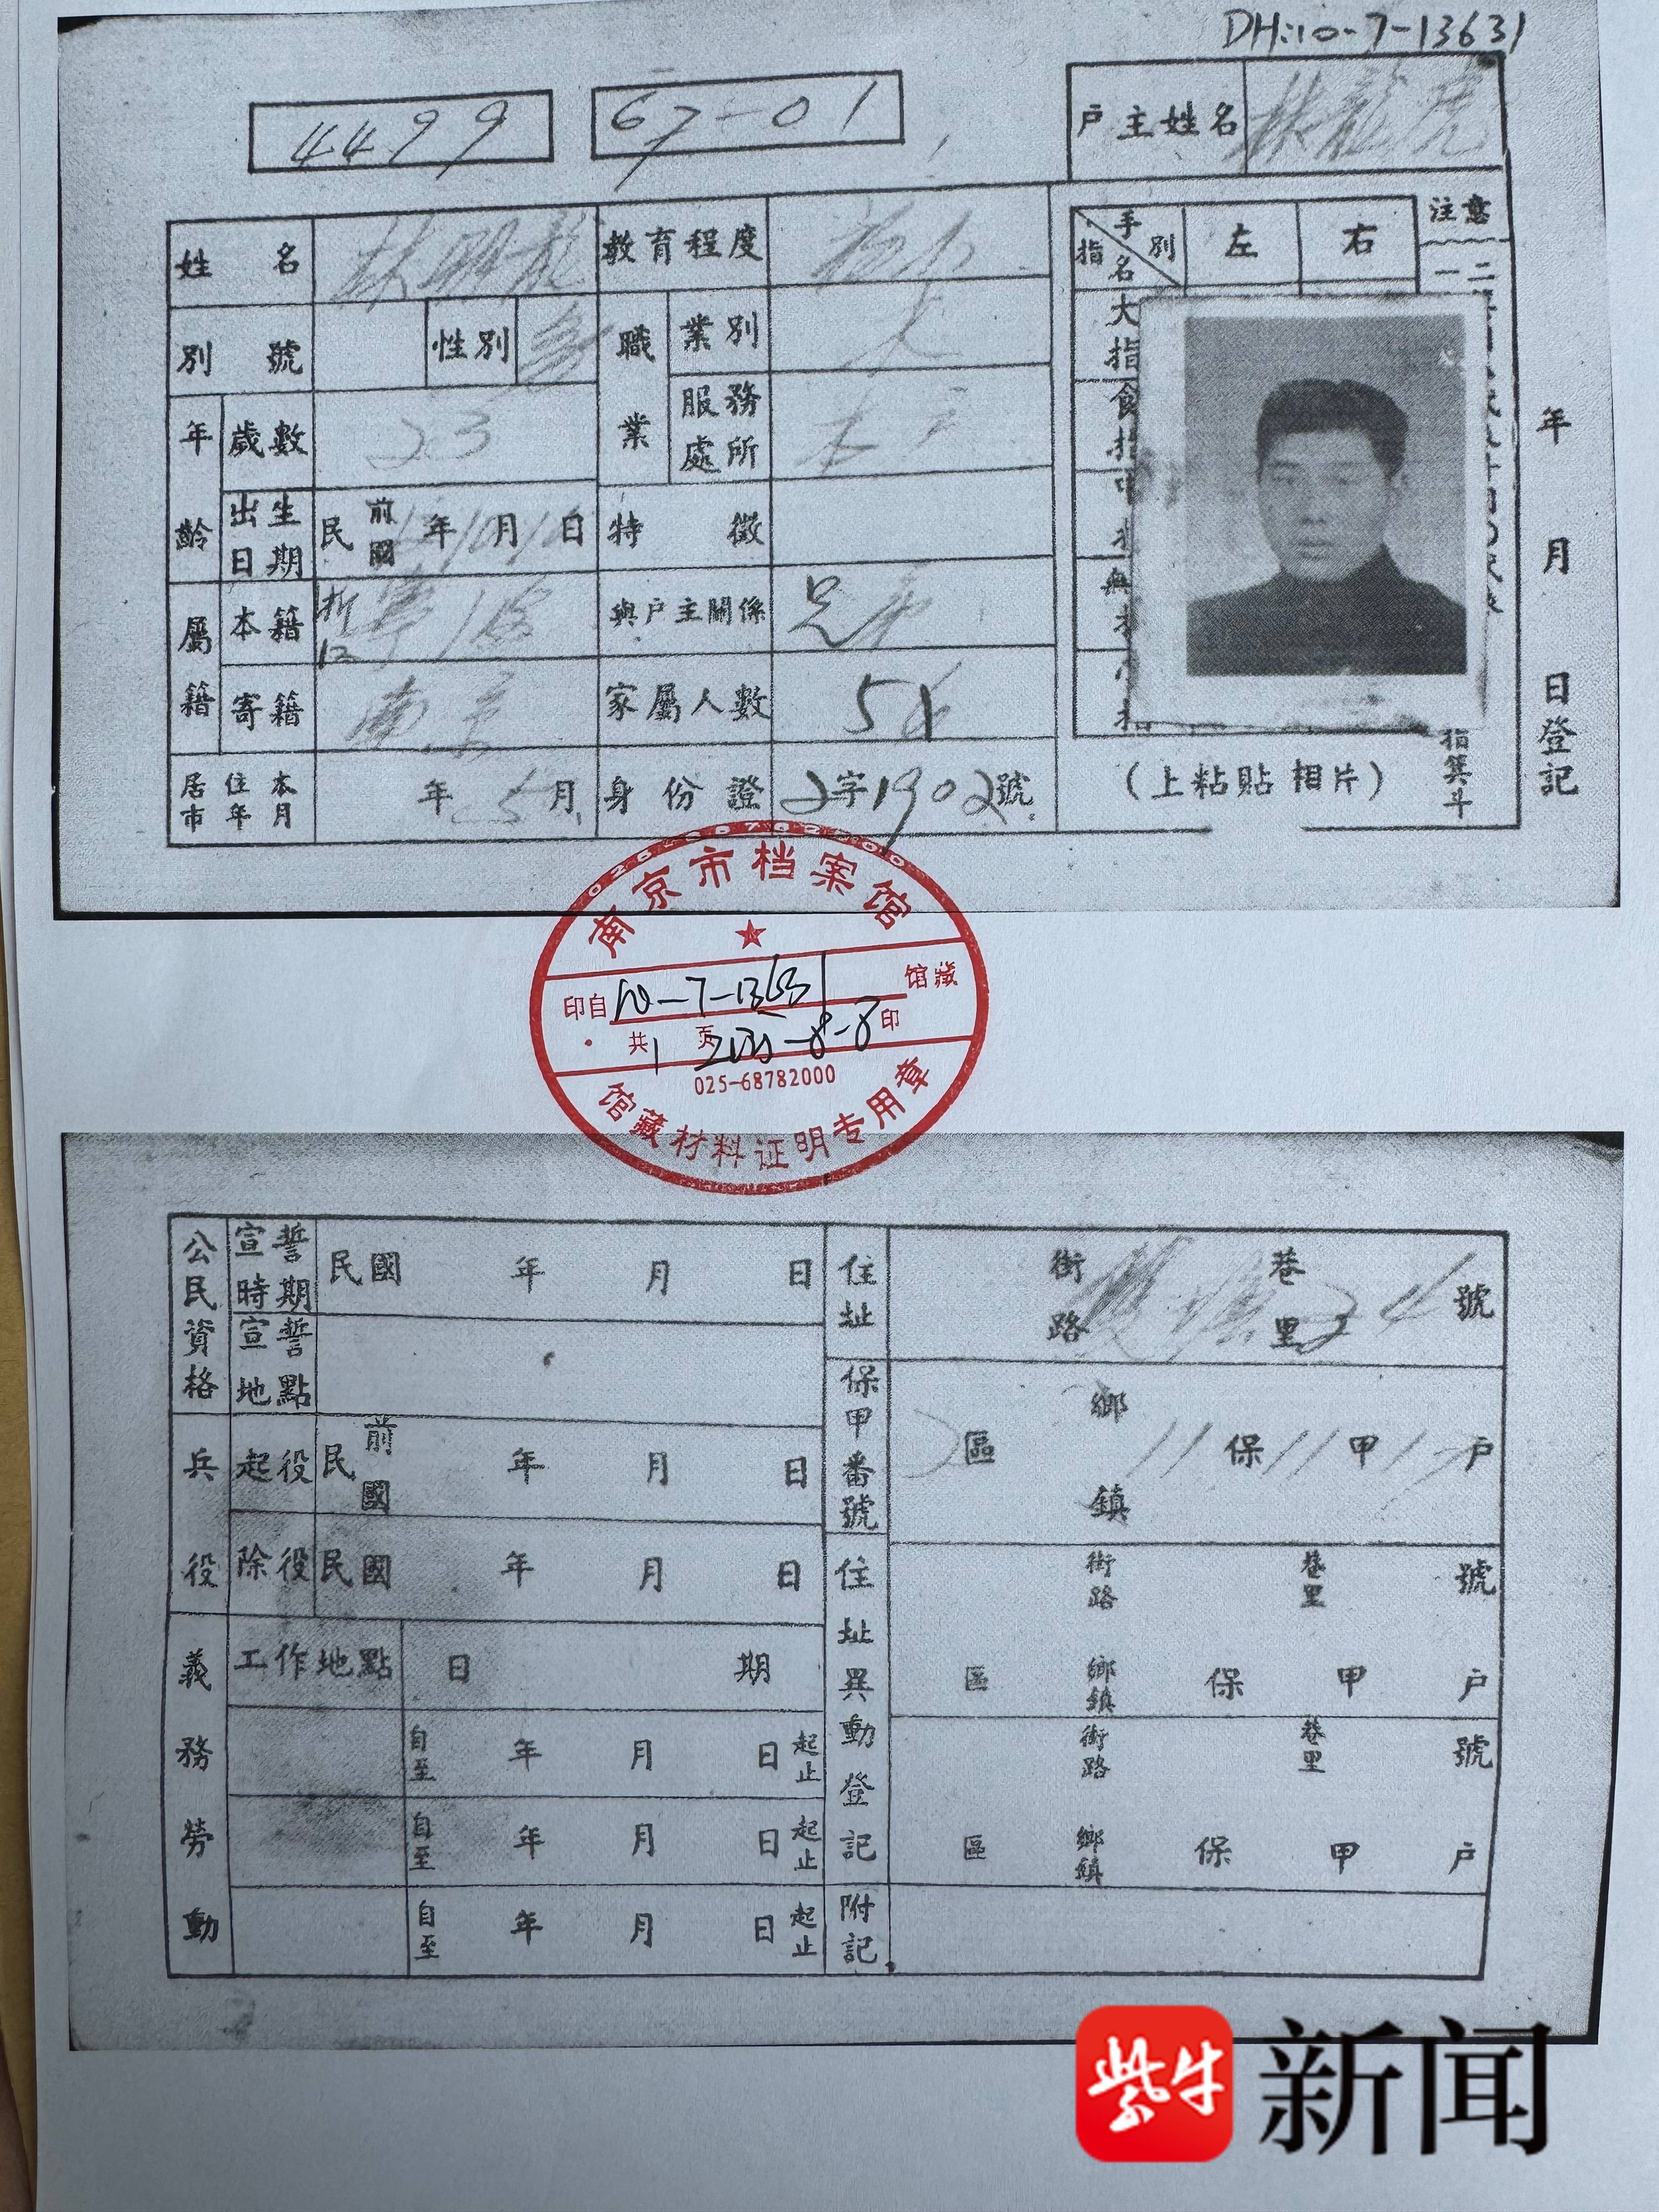 DH:10-7-13631
4499
67-01
戶主姓名 林龍虎
姓名 林明龍
教育程度 初小
別號
性別 男
職業
業別
服務處所
年齡
歲數 23
出生日期 民前國 年 月 日
特徵
屬籍
本籍 浙江寧波
與戶主關係 兄弟
寄籍 南京
家屬人數 5
居住本市年月 年 5 月
身份證 2字1902號
手別 指名 左 右
大指
食指
注意
(上粘貼相片)
指箕斗
年 月 日登記
南京市档案馆
印自 10-7-13631 馆藏
共 1 页 2025-8-8 印
025-68782000
馆藏材料证明专用章
公民資格
宣誓時期 民國 年 月 日
宣誓地點
兵役
起役 民前國 年 月 日
除役 民國 年 月 日
義務勞動
工作地點 日期
自至 年 月 日 起止
自至 年 月 日 起止
自至 年 月 日 起止
住址 街路 雙塘 巷里 34 號
保甲番號 2 區 鄉鎮 11 保 11 甲 戶
住址異動登記
街路 巷里 號
區 鄉鎮 保 甲 戶
街路 巷里 號
區 鄉鎮 保 甲 戶
附記
紫牛新闻